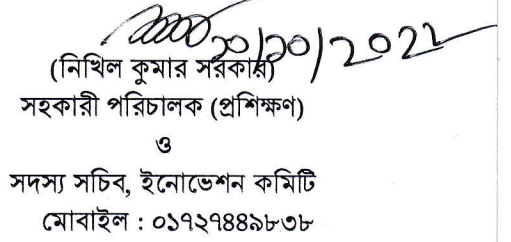 ২০/১০/২০২২
(নিখিল কুমার সরকার)
সহকারী পরিচালক (প্রশিক্ষণ)
ও
সদস্য সচিব, ইনোভেশন কমিটি
মোবাইল : ০১৭২৭৪৪৯৮৩৮